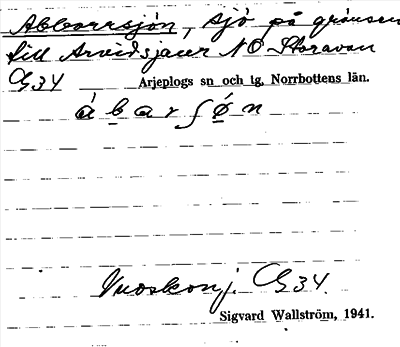 Abborrsjön, sjö på gränsen
till Arvidsjaur NO Storavan
G34
Arjeplogs sn och tg, Norrbottens län.
ábarʃǿn
Vuoskonj. G34.
Sigvard Wallström, 1941.